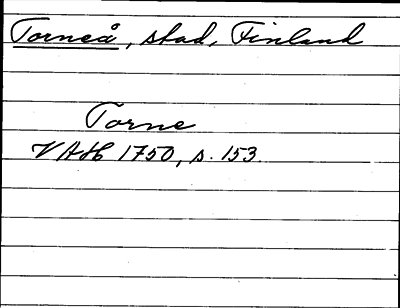 Torneå, stad, Finland
Torne
VAH 1750, s. 153.